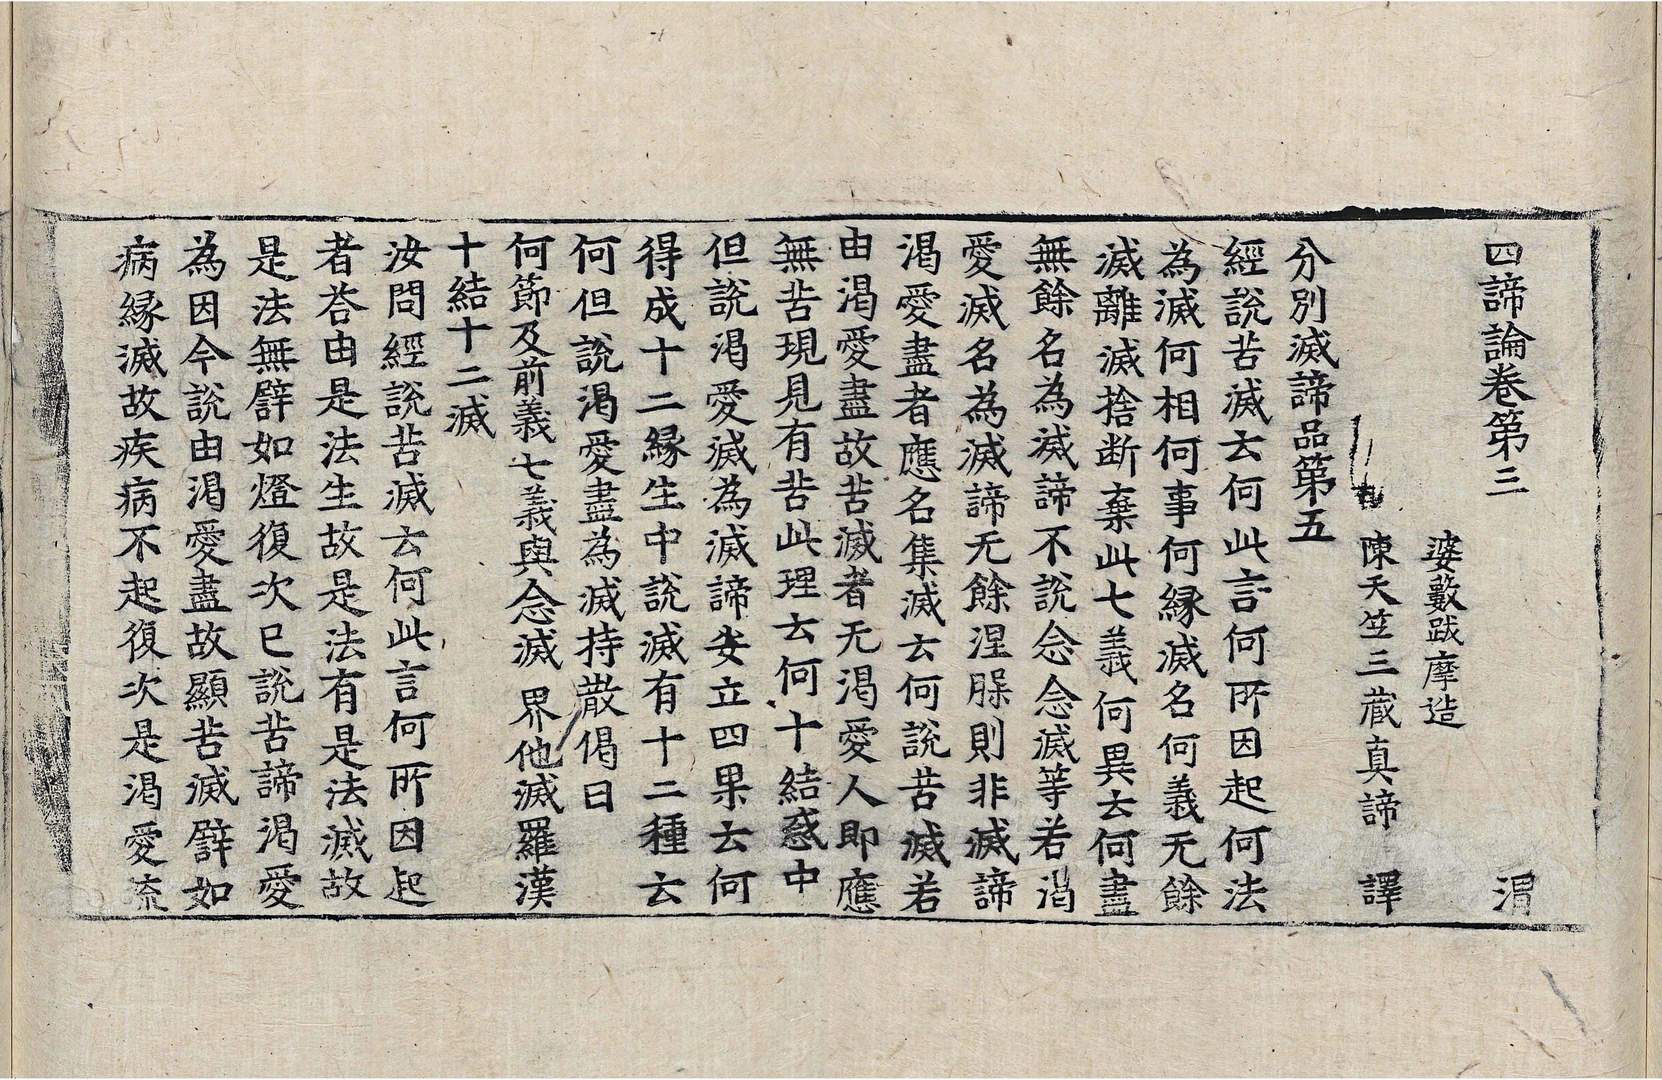 四諦論卷第三 渭
婆藪跋摩造
陳天竺三藏真諦譯
分別滅諦品第五
經說苦滅云何此言何所因起何法
為滅何相何事何緣滅名何義无餘
滅離滅捨断棄此七義何異云何盡
無餘名為滅諦不說念念滅等若渴
愛滅名為滅諦无餘涅槃則非滅諦
渴愛盡者應名集滅云何說苦滅若
由渴愛盡故苦滅者无渴愛人即應
無苦現見有苦此理云何十結惑中
但說渴愛滅為滅諦安立四果云何
得成十二緣生中說滅有十二種云
何但說渴愛盡為滅持散偈曰
何節及前義七義與念滅 界他滅羅漢
十結十二滅
汝問經說苦滅云何此言何所因起
者荅由是法生故是法有是法滅故
是法無譬如燈復次已說苦諦渴愛
為因今說由渴愛盡故顯苦滅譬如
病緣滅故疾病不起復次是渴愛流